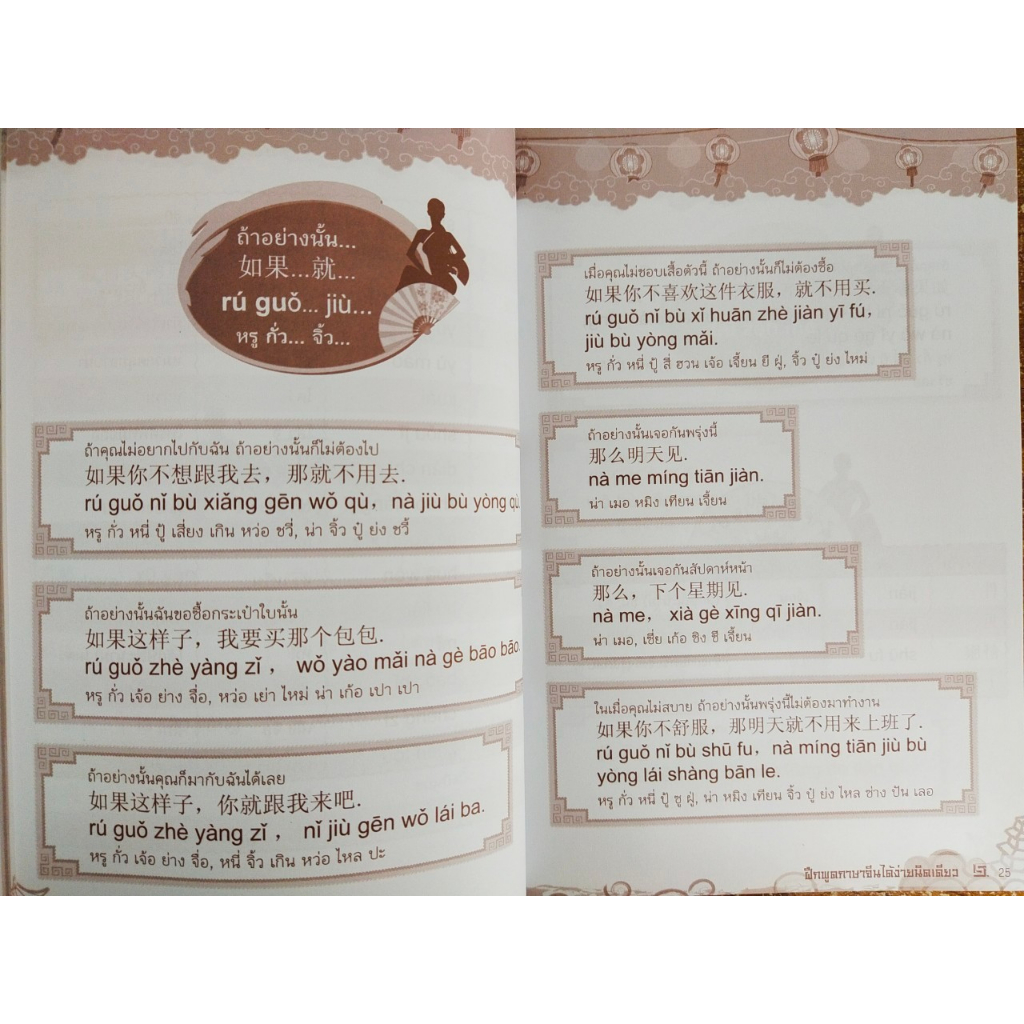 ถ้าอย่างนั้น...
如果...就...
rú guǒ... jiù...
หรู กั่ว... จิ้ว...
ถ้าคุณไม่อยากไปกับฉัน ถ้าอย่างนั้นก็ไม่ต้องไป
如果你不想跟我去，那就不用去.
rú guǒ nǐ bù xiǎng gēn wǒ qù，nà jiù bù yòng qù.
หรู กั่ว หนี่ ปู้ เสี่ยง เกิน หว่อ ชวี่, น่า จิ้ว ปู๋ ย่ง ชวี้
ถ้าอย่างนั้นฉันขอซื้อกระเป๋าใบนั้น
如果这样子，我要买那个包包.
rú guǒ zhè yàng zǐ， wǒ yào mǎi nà gè bāo bāo.
หรู กั่ว เจ้อ ย่าง จื่อ, หว่อ เย่า ไหม่ น่า เก้อ เปา เปา
ถ้าอย่างนั้นคุณก็มากับฉันได้เลย
如果这样子，你就跟我来吧.
rú guǒ zhè yàng zǐ， nǐ jiù gēn wǒ lái ba.
หรู กั่ว เจ้อ ย่าง จื่อ, หนี่ จิ้ว เกิน หว่อ ไหล ปะ
เมื่อคุณไม่ชอบเสื้อตัวนี้ ถ้าอย่างนั้นก็ไม่ต้องซื้อ
如果你不喜欢这件衣服，就不用买.
rú guǒ nǐ bù xǐ huān zhè jiàn yī fú,
jiù bù yòng mǎi.
หรู กั่ว หนี่ ปู้ สี่ ฮวน เจ้อ เจี้ยน ยี ฝู่, จิ้ว ปู๋ ย่ง ไหม่
ถ้าอย่างนั้นเจอกันพรุ่งนี้
那么明天见.
nà me míng tiān jiàn.
น่า เมอ หมิง เทียน เจี้ยน
ถ้าอย่างนั้นเจอกันสัปดาห์หน้า
那么，下个星期见.
nà me， xià gè xīng qī jiàn.
น่า เมอ, เซี่ย เก้อ ซิง ชี เจี้ยน
ในเมื่อคุณไม่สบาย ถ้าอย่างนั้นพรุ่งนี้ไม่ต้องมาทำงาน
如果你不舒服，那明天就不用来上班了.
rú guǒ nǐ bù shū fu，nà míng tiān jiù bù
yòng lái shàng bān le.
หรู กั่ว หนี่ ปู้ ซู ฝู่, น่า หมิง เทียน จิ้ว ปู๋ ย่ง ไหล ซ่าง ปัน เลอ
ฝึกพูดภาษาจีนได้ง่ายนิดเดียว 25